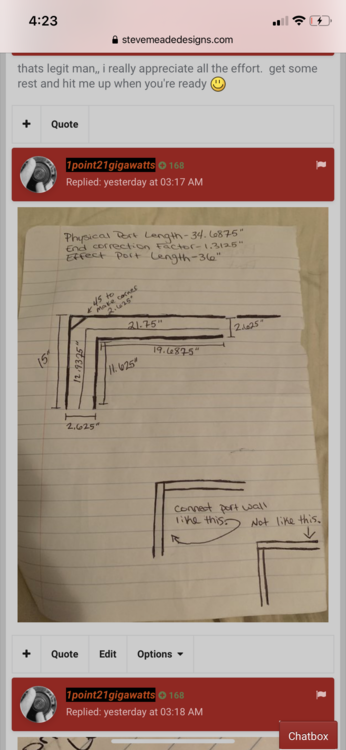 4:23
stevemeadedesigns.com
thats legit man,, i really appreciate all the effort. get some
rest and hit me up when you're ready
+ Quote
1point21gigawatts 168
Replied: yesterday at 03:17 AM
Physical Port Length-34.6875"
End correction Factor-1.3125"
Effect Port Length-36"
45 to
make corner
2.625"
21.75"
2.625"
15"
12.9375"
19.6875"
11.625"
2.625"
Connect port wall
like this.
Not like this.
+ Quote Edit Options
1point21gigawatts 168
Replied: yesterday at 03:18 AM
Chatbox